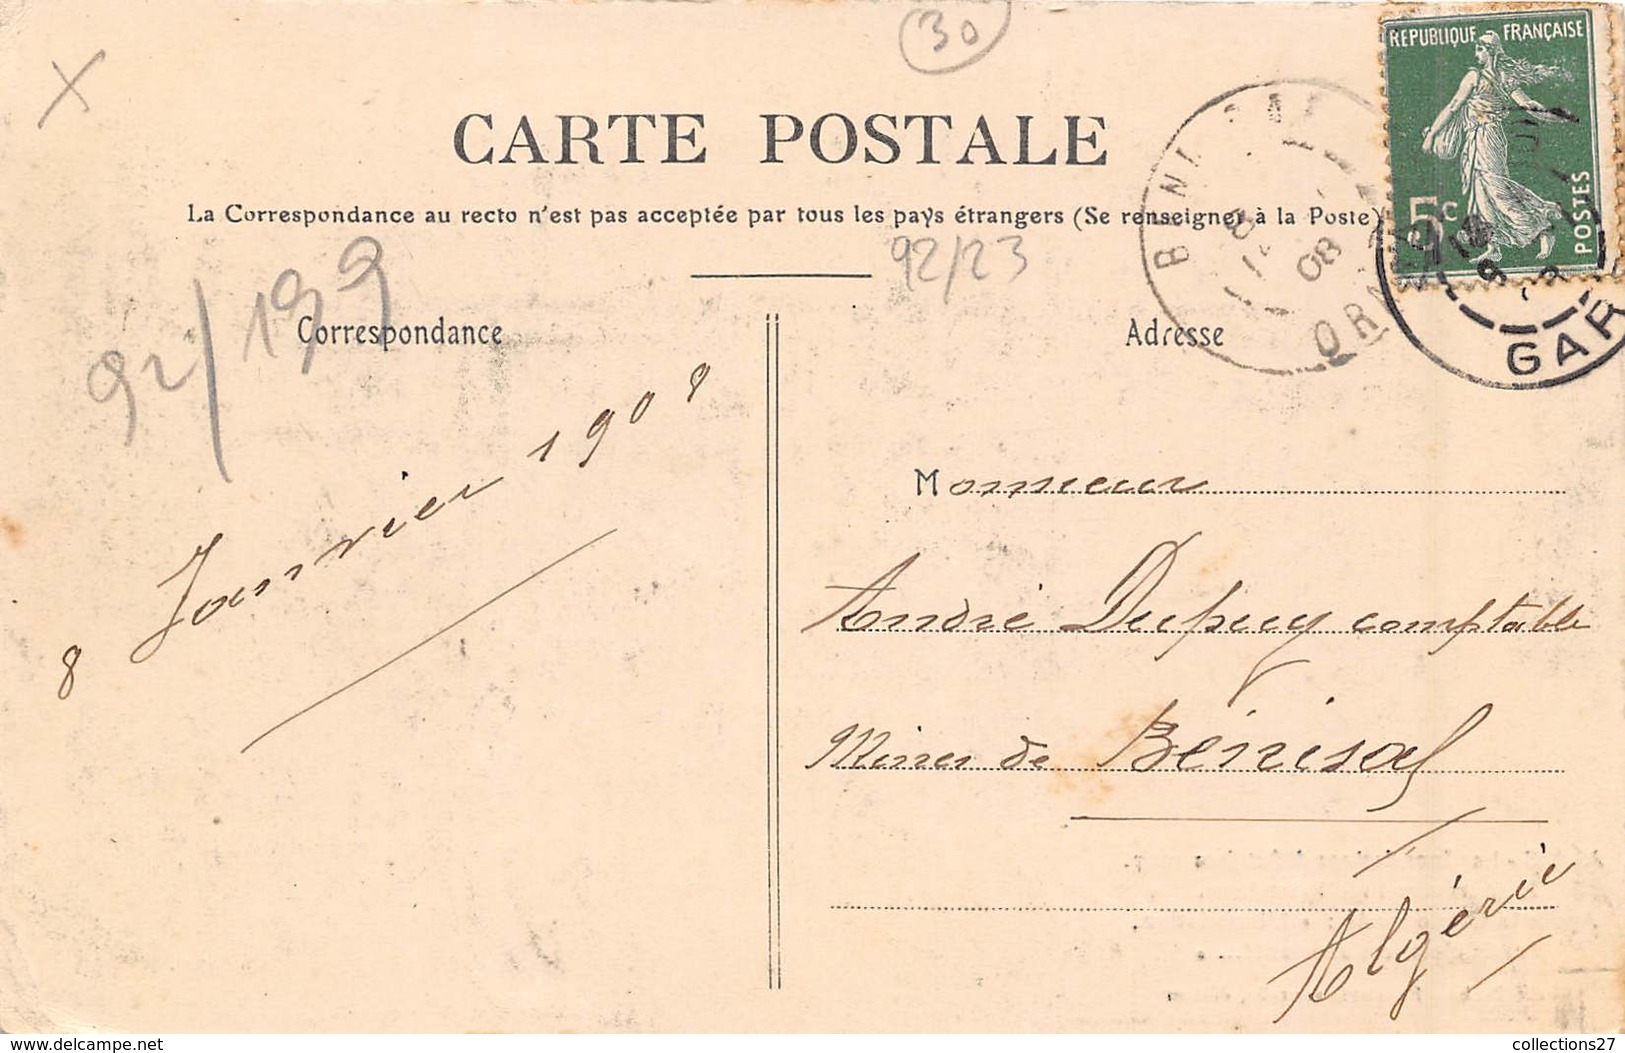 30
REPUBLIQUE FRANÇAISE
5c
POSTES
CARTE POSTALE
La Correspondance au recto n'est pas acceptée par tous les pays étrangers (Se renseigner à la Poste)
BENI
08
ORAN
GAR
92/23
92/199
Correspondance
Adresse
8 Janvier 1908
Monsieur
André Dupuy comptable
Mines de Bénisaf
Algérie
www.delcampe.net
collections27